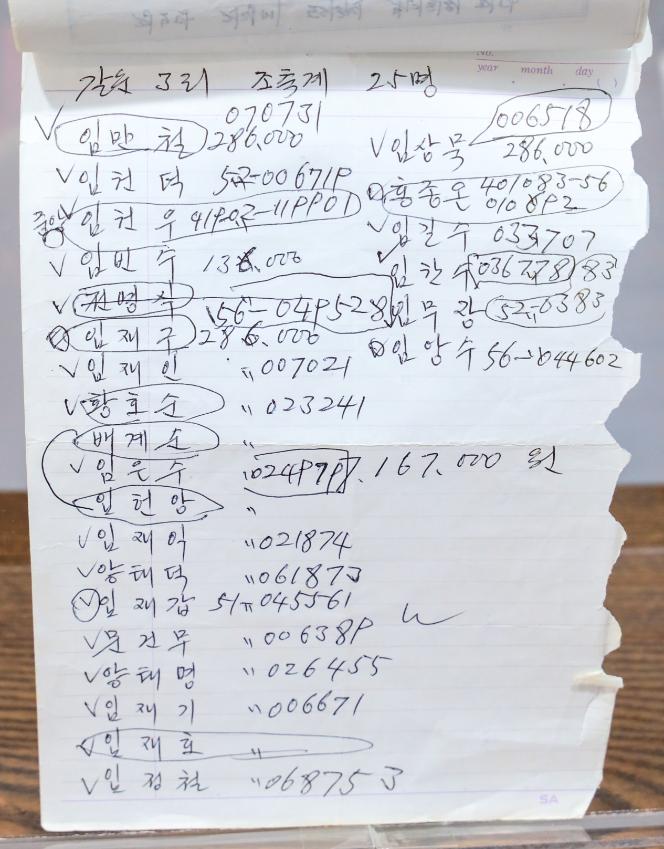 No.
year month day
( )
갈운 3리 조축계 25명
070731
∨ 임만철 286,000
∨ 임헌덕 52-006719
임헌우 41902-119901
∨ 임빈수 136,000
∨ 전명식 56-049528
임재구 286,000
∨ 임재인 〃 007021
∨ 황호순 〃 023241
배계순 〃
∨ 임은수 〃 024979 7,167,000 원
임헌앙 〃
∨ 임재익 〃 021874
∨ 양태덕 〃 061873
∨ 임재갑 51〃 045561
∨ 문건무 〃 006389
∨ 양태명 〃 026455
∨ 임재기 〃 006671
∨ 임재호 〃
∨ 임정철 〃 068753
006518
∨ 임상묵 286,000
홍종온 401083-56
010892
∨ 임길수 033707
임찬수 036778 83
임무광 52-0383
임양수 56-044602
SA